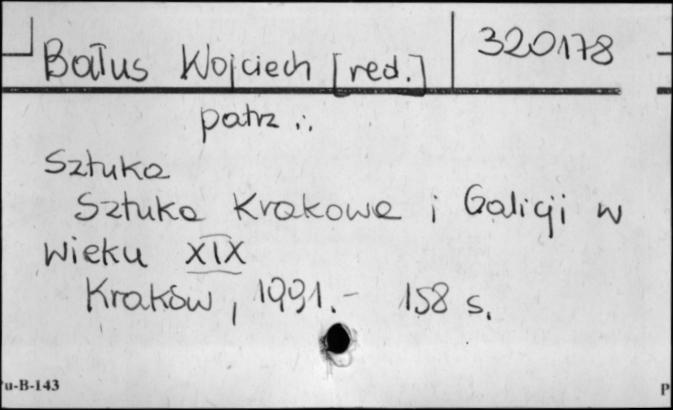 Bałus Wojciech [red.] 320178
patrz :.
Sztuka
Sztuka Krakowa i Galicji w
wieku XIX
Kraków, 1991.- 158 s.
u-B-143
P